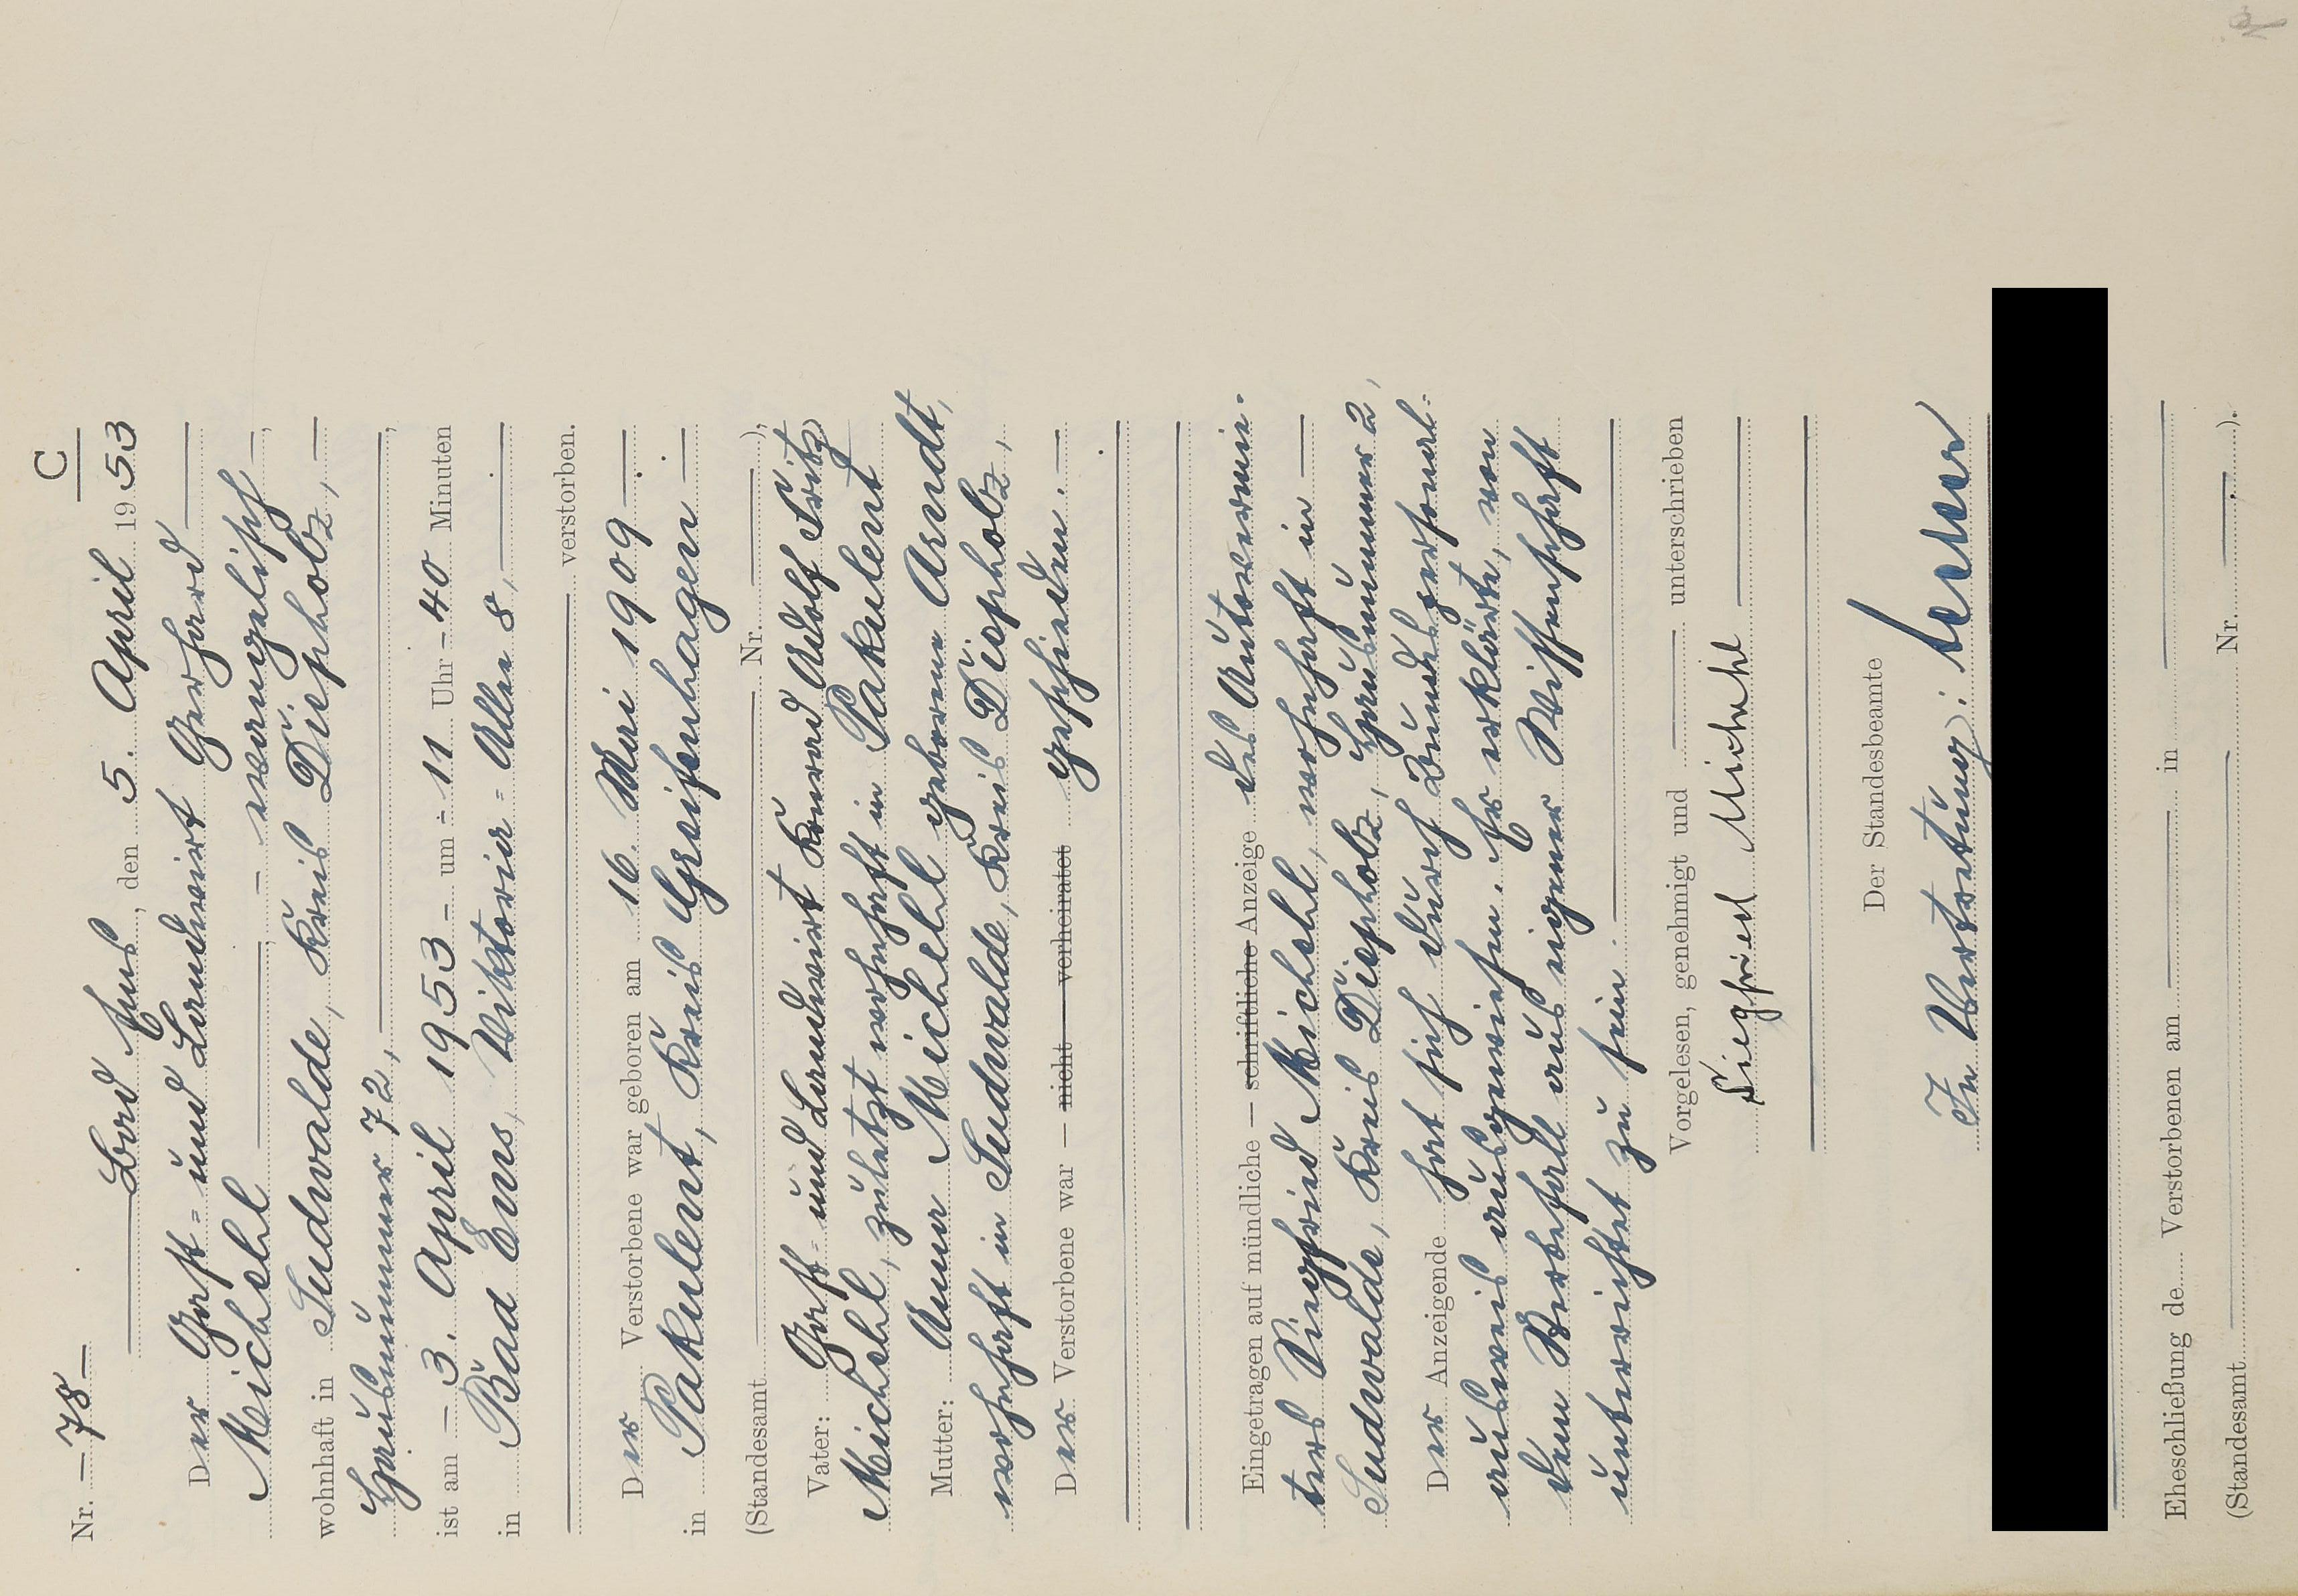 C
Nr. — 78 —
Bad Ems, den 5. April 1953
Der Gast- und Landwirt Gerhard
Michehl — evangelisch —,
wohnhaft in Sudwalde, Kreis Diepholz, —
Hausnummer 72,
ist am — 3. April 1953 — um - 11 Uhr - 40 Minuten
in Bad Ems, Viktoria-Allee 8,
verstorben.
Der Verstorbene war geboren am 16. Mai 1909 —.
in Pakulent, Kreis Greifenhagen —
(Standesamt Nr. ),
Vater: Gast- und Landwirt Konrad Adolf Fritz
Michehl, zuletzt wohnhaft in Pakulent
Mutter: Anna Michehl geborene Arndt,
wohnhaft in Sudwalde, Kreis Diepholz,
Der Verstorbene war — nicht — verheiratet geschieden. —
Eingetragen auf mündliche — schriftliche Anzeige des Autovermie-
ters Siegfried Michehl, wohnhaft in —
Sudwalde, Kreis Diepholz, Hausnummer 2,
Der Anzeigende hat sich durch Bundespersonal-
ausweis ausgewiesen. Er erklärte, von
dem Sterbefall aus eigener Wissenschaft
unterrichtet zu sein.
Vorgelesen, genehmigt und unterschrieben
Siegfried Michehl
Der Standesbeamte
In Vertretung:
Eheschließung de Verstorbenen am in
(Standesamt Nr. ).